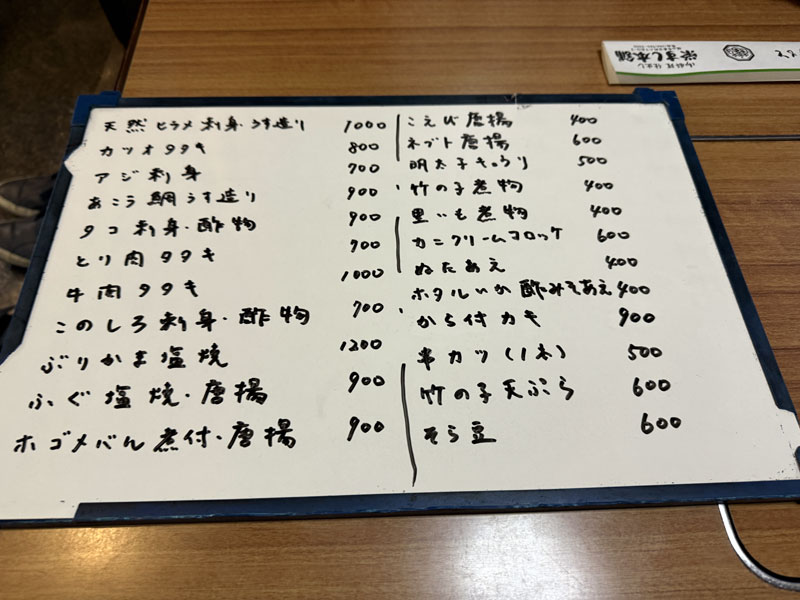 天然ヒラメ刺身・うす造り 1000
カツオタタキ 800
アジ刺身 700
あこう鯛うす造り 900
タコ刺身・酢物 900
とり肉タタキ 900
牛肉タタキ 1000
このしろ刺身・酢物 700
ぶりかま塩焼 1200
ふぐ塩焼・唐揚 900
ホゴメバル煮付・唐揚 900
こえび唐揚 400
ネブト唐揚 600
明太子きゅうり 500
竹の子煮物 400
里いも煮物 400
カニクリームコロッケ 600
ぬたあえ 400
ホタルいか酢みそあえ 400
から付カキ 900
串カツ(1本) 500
竹の子天ぷら 600
そら豆 600